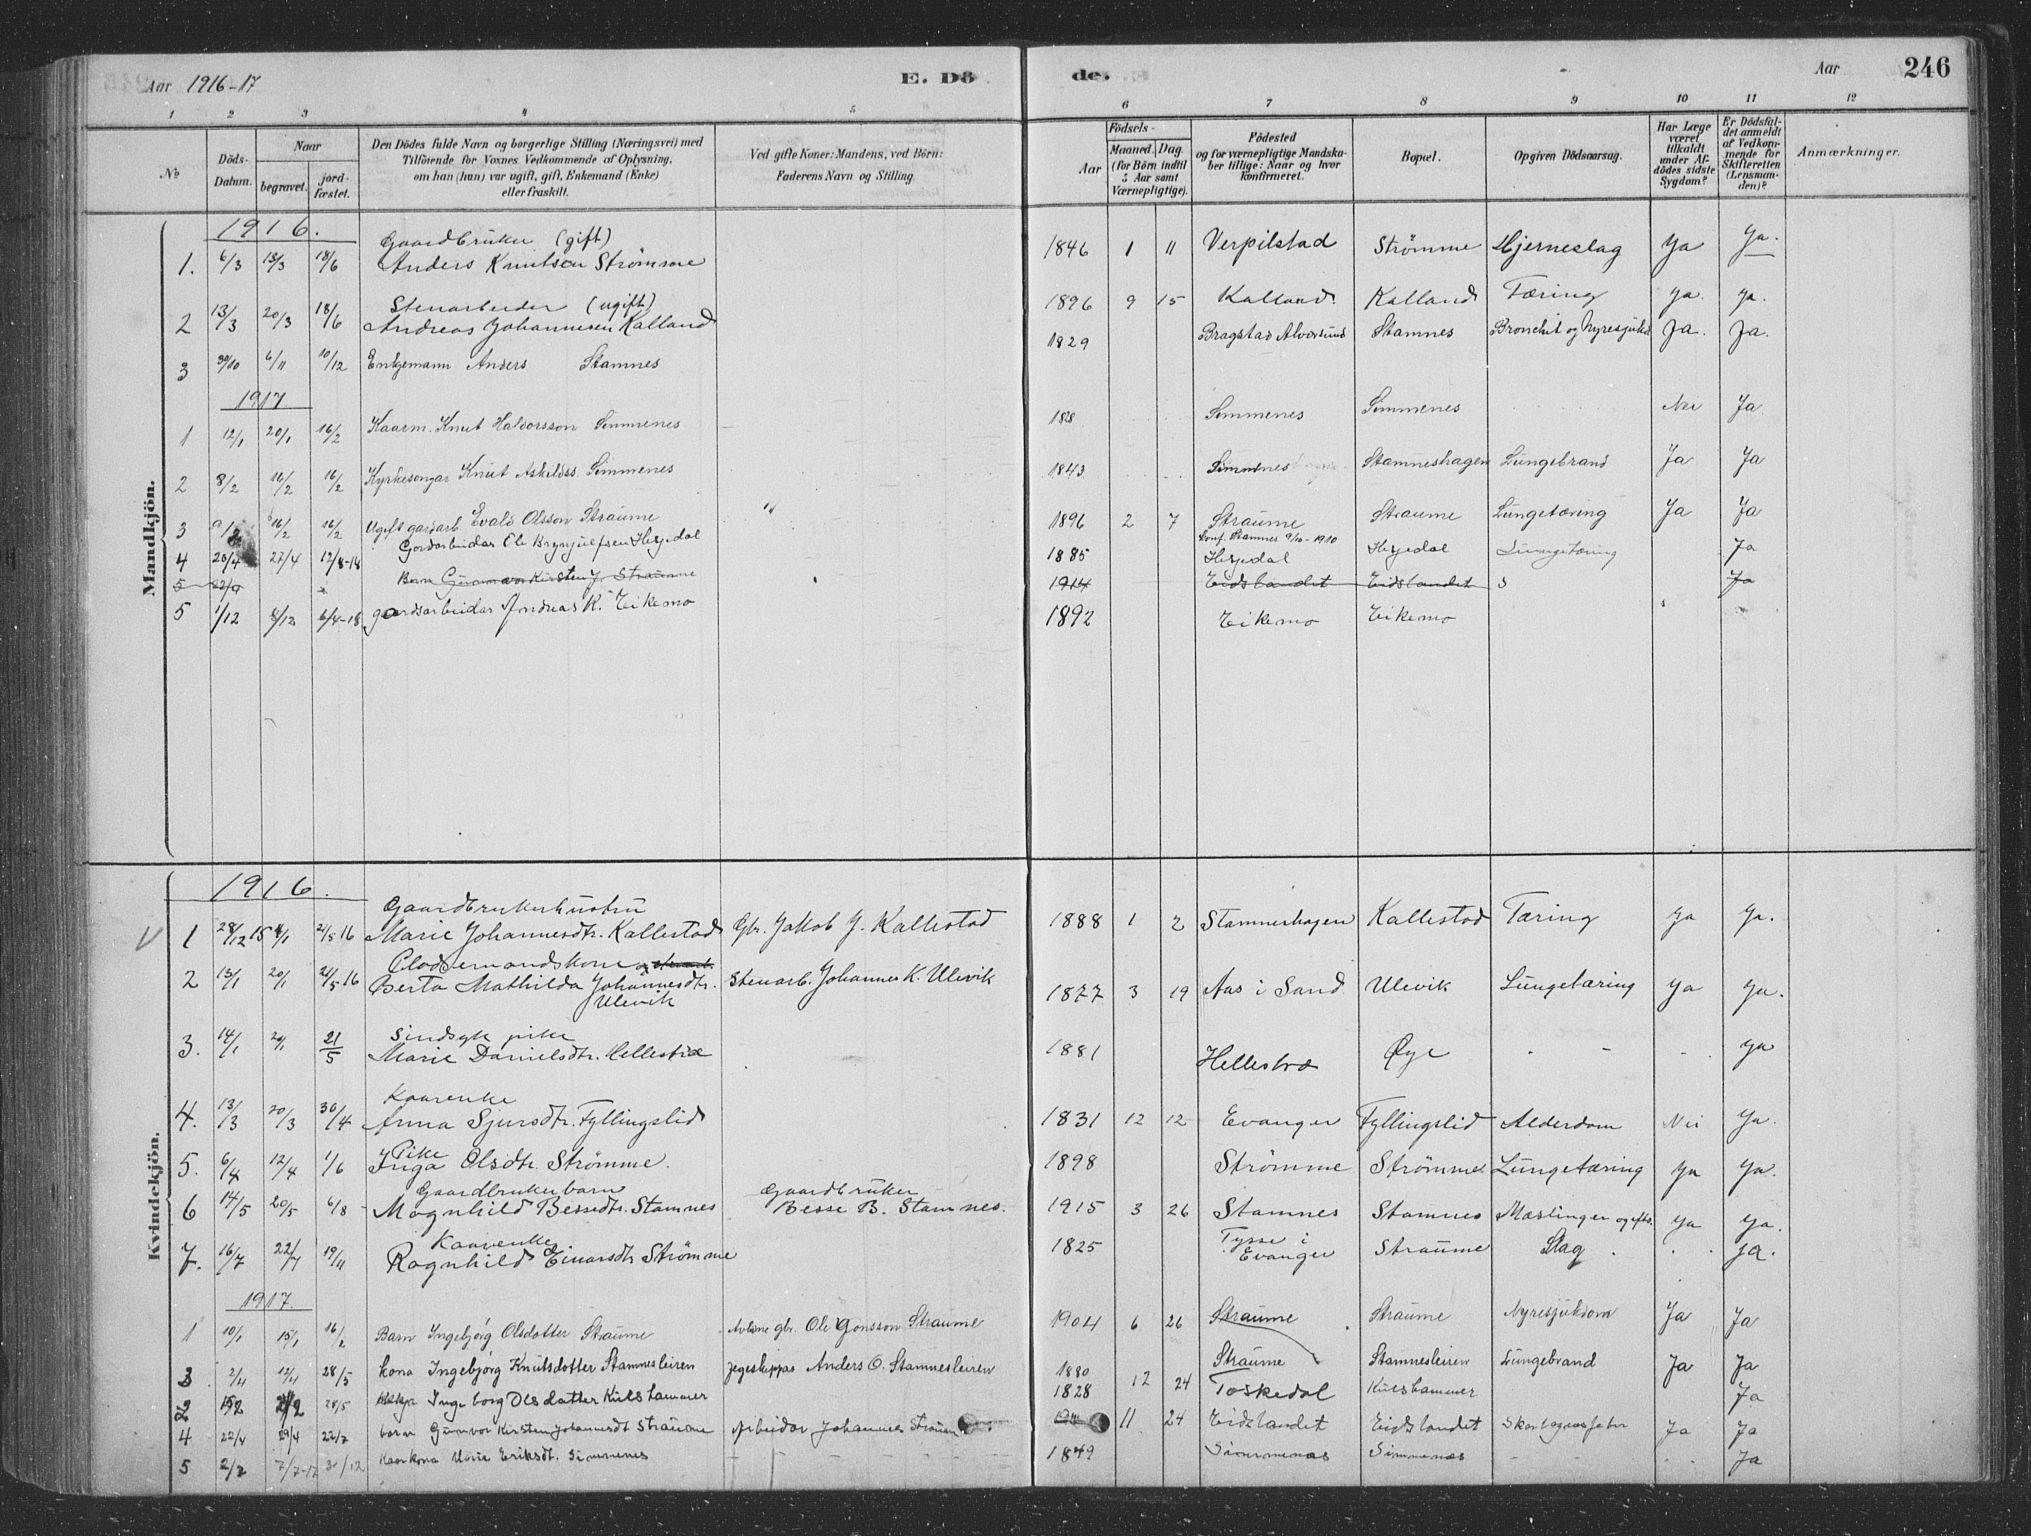 Aar 1916-17 E. Dö de. Aar 246
1 2 3 4 5 6 7 8 9 10 11 12
No
Döds-Datum.
Naar
begravet.
jord-fæstet.
Den Dödes fulde Navn og borgerlige Stilling (Næringsvei) med
Tilföiende for Voxnes Vedkommende af Oplysning,
om han (hun) var ugift, gift, Enkemand (Enke)
eller fraskilt.
Ved gifte Koner: Mandens, ved Börn:
Faderens Navn og Stilling.
Födsels-
Aar
Maaned. Dag.
(for Börn indtil
5 Aar samt
Værnepligtige).
Födested
og for værnepligtige Mandska-
ber tillige: Naar og hvor
konfirmeret.
Bopæl.
Opgiven Dödsaarsag.
Har Læge
været
tilkaldt
under Af-
dödes sidste
Sygdom?
Er Dödsfal-
det anmeldt
af Vedkom-
mende for
Skifteretten
(Lensman-
den)?
Anmærkninger.
Mandkjön.
1916.
Gaardbruker (gift)
1. 6/3 13/3 18/6 Anders Knutsen Strømme 1846 1 11 Verpilstad Strømme Hjerneslag Ya Ya.
Stenarbeider (ugift)
2 13/3 20/3 18/6 Andreas Johannesen Kalland 1896 9 15 Kalland. Kalland Tæring Ya. Ya.
3 30/10 6/11 10/12 Enkjemann Anders Stamnes 1829 Bragstad Alversund Stamnes Bronchit og Nyresjukd Ja. Ja.
1917
1 12/1 20/1 16/2 Kaarm. Knut Haldorsson Simmenes Simmenes Simmenes Nei Ja.
2 8/2 16/2 16/2 Kyrkjesongar Knut Askildss Simmenes 1843 Simmenes Stamneshagen Lungebrand Ja Ja
3 16/2 16/2 Ugift gardarb. Evald Olsson Straume 1896 2 7 Straume Straume Lungetæring Ja Ja
Conf. Stamnes 9/10-1910
4 20/4 27/4 12/8-18 Gardarbeidar Ole Brynjulfsen Hesjedal 1885 Hesjedal Hesjedal Lungetæring Ja
5 22/4 Barn Gunnvor Kirsten J. Straume 1914 Eidslandet Eidslandet Ja
5 1/12 8/12 6/4-18 gardsarbeidar Andreas K. Eikemo 1892 Eikemo Eikemo
Kvindekjön.
1916.
Gaardbrukerhustru
V 1 28/12 15 4/1 21/5 16 Marie Johannesdtr. Kallestad Gbr. Jakob J. Kallestad 1888 1 2 Stamneshagen Kallestad Tæring Ya Ya.
2 13/1 20/1 21/5 16 Berta Mathilda Johannesdtr. Ulevik Stenarb. Johannes K. Ulevik 1877 3 19 Aas i Sand Ulevik Lungetæring Ya Ya.
Sindsyk pike
3. 14/1 20/1 21/5 Marie Danielsdtr. Hellestræ 1881 Hellestræ Øye Ya
Kaarenke
4. 13/3 20/3 30/4 Anna Sjursdtr. Fyllingslid 1831 12 12 Evanger Fyllingslid Alderdom Nei Ya.
Pike
5. 6/4 12/4 1/6 Inga Olsdtr. Strømme. 1898 Strømme Strømme Lungetæring Ya Ya.
Gaardbrukerbarn Gaardbruker
6 14/5 20/5 6/8 Magnhild Bessedtr. Stamnes Besse B. Stamnes. 1915 3 26 Stamnes Stamnes Mæslinger og efts. Ya Ya.
Kaarenke
7. 16/7 22/7 19/11 Ragnhild Einarsdtr Strømme 1825 Tysse i Evanger Straume Slag Ja.
1917.
1 10/1 15/1 16/2 Barn Ingebjørg Olsdotter Straume gbr. Ole Gonsson Straume 1904 6 26 Straume Straume Nyresjukdom Ja Ja
3 2/4 12/4 28/5 kona Ingebjørg Knutsdotter Stamnesleiren Anders O. Stamnesleiren 1880 Straume Stamnesleiren Lungebrand Ja Ja
2 28/5 Ingeborg Olsdatter Kulshammer 1828 12 24 Toskedal Kulshammer Ja
4 22/4 29/4 22/7 barn Gunnvor Kirsten Johannesdt Straume Arbeidar Johannes Straume 11 24 Eidslandet Eidslandet Ja Ja
5 2/7 7/7-17 31/12 Kaarkona Marie Eriksdt. Simmenes 1849 Simmenes Simmenes Ja